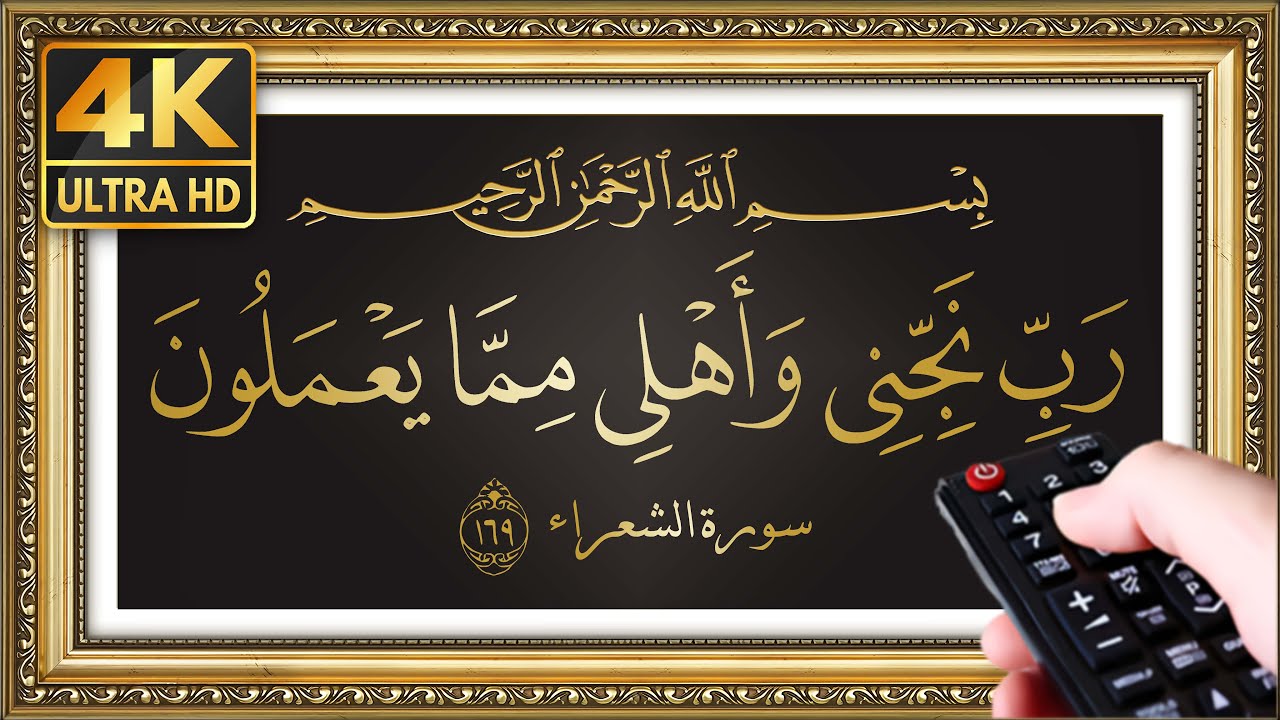 4K
ULTRA HD
بِسْمِ ٱللَّهِ ٱلرَّحْمَٰنِ ٱلرَّحِيمِ
رَبِّ نَجِّنِى وَأَهْلِى مِمَّا يَعْمَلُونَ
سورة الشعراء ١٦٩
1 2 3
4
7
MUTE
+
P
−